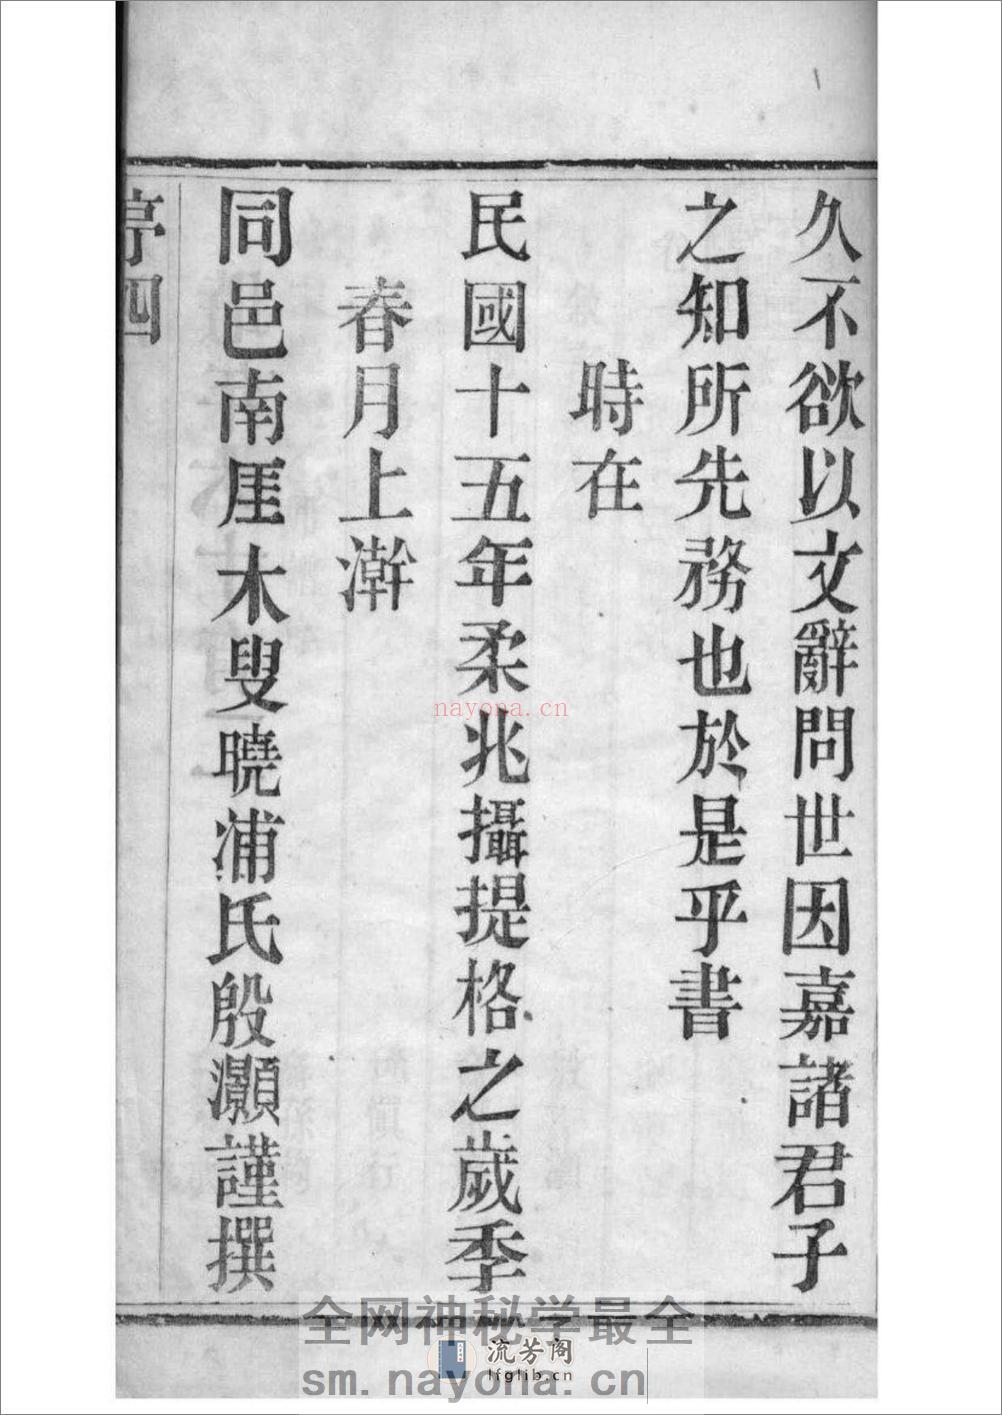 久不欲以文辭問世因嘉諸君子
之知所先務也於是乎書
時在
民國十五年柔兆攝提格之歲季
春月上澣
同邑南厓木叟曉浦氏殷灝謹撰
序四
nayona.cn
全网神秘学最全
流芳阁
lfglib.cn
sm.nayona.cn